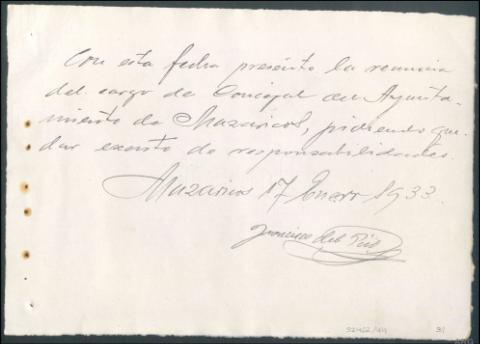 Con esta fecha presento la renuncia
del cargo de Concejal del Ayunta-
miento de Mazaricos, pidiendo que-
dar exento de responsabilidades.
Mazaricos 17 Enero 1933.
Francisco del